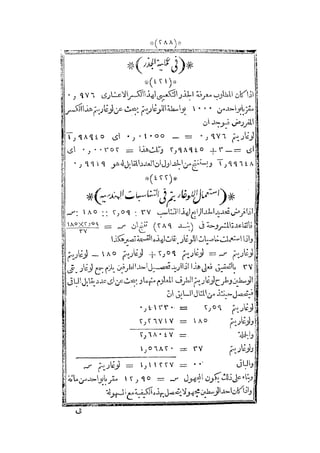 *(٢٨٨)*
*(في كمالية الجذر)*
*(٤٢١)*
اذا كان المطلوب معرفة الجذر التكعيبي لهذا الكسر الاعشارى ٩٧٦ ر ٠
مقربا بواحد من ١٠٠٠ بواسطة اللوغاريتم يبحث عن لوغاريتم هذا الكسر
المفروض فيوجد ان
لوغاريتم ٩٧٦ ر ٠ = — ٠١٠٥٥ ر ٠ اى ٩٨٩٤٥ ر ١
اى = — ٣ + ٩٨٩٤٥ ر ٢ وثلث هذا = ٠٠٣٥٢ ر ٠ اى
٩٩٦٤٨ ر ١ ويستنتج من الجداول ان العدد المقابل له هو ٩٩١٩ ر ٠
*(٤٢٢)*
*(استعمال اللوغاريتم في التناسبات الهندسية)*
اذا فرض تحديد الحد الرابع لهذا التناسب ٣٧ : ٥٩ ر ٢ :: ١٨٥ : سه
فالقاعدة المشروحة في (بند ٢٨٩) تنتج ان سه = ٥٩ر٢×١٨٥ / ٣٧
واذا استعملت خاصيات اللوغاريتمات لهذه القسمة تصير هكذا
لوغاريتم سه = لوغاريتم ٥٩ ر ٢ + لوغاريتم ١٨٥ — لوغاريتم
٣٧ بالتحقيق فعلى هذا اذا اريد تحصيل احد الطرفين يلزم جمع لوغاريتمى
الوسطين وطرح لوغاريتم الطرف المعلوم منهما ويبحث عن اى عدد يقابل الباقى
فيتحصل حينئذ من المثال السابق ان
لوغاريتم ٥٩ ر ٢ = ٤١٣٣٠ ر ٠
ولوغاريتم ١٨٥ = ٢٦٧١٧ ر ٢
والجملة = ٦٨٠٤٧ ر ٢
ولوغاريتم ٣٧ = ٥٦٨٢٠ ر ١
والباقى ٠٠ = ١١٢٢٧ ر ١ = لوغاريتم سه
وبناء على ذلك يكون المجهول سه = ٩٥ ر ١٢ مقربا بواحد من مائة
واذا كان احد الوسطين مجهولا يتحصل بهذه الكيفية مع السهولة
فى